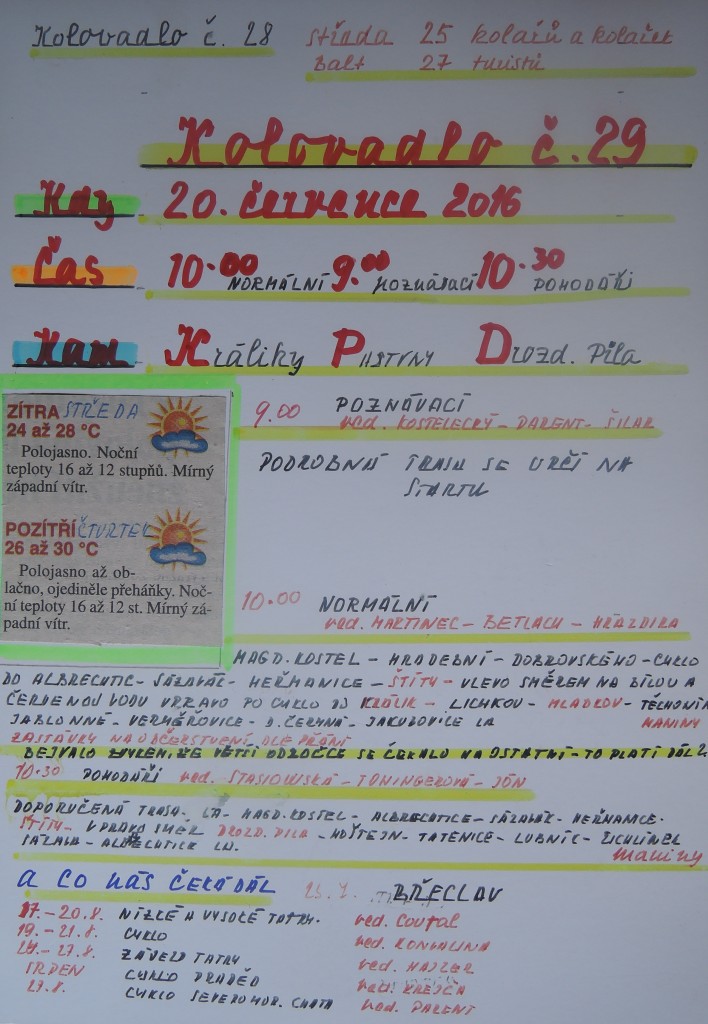 Kolovadlo č. 28
středa 25 kolařů a kolařek
Balt 27 turistů
Kolovadlo č. 29
Kdy 20. července 2016
Čas 10.00 NORMÁLNÍ 9.00 POZNÁVACÍ 10.30 POHODÁŘI
Kam Králíky PUSTVNY Drozd. Pila
ZÍTRA STŘEDA
24 až 28 °C
Polojasno. Noční
teploty 16 až 12 stupňů. Mírný
západní vítr.
POZÍTŘÍ ČTVRTEK
26 až 30 °C
Polojasno až ob-
lačno, ojediněle přeháňky. Noč-
ní teploty 16 až 12 st. Mírný zá-
padní vítr.
9.00 POZNÁVACÍ
ved. KOSTELECKÝ - PARENT - ŠILAR
PODROBNÁ TRASA SE URČÍ NA
STARTU
10.00 NORMÁLNÍ
ved. MARTINEC - BETLACH - HRAZDIRA
MAGD. KOSTEL - HRADEBNÍ - DOBROVSKÉHO - CYKLO
DO ALBRECHTIC - SÁZAVA - HEŘMANICE - ŠTÍTY - VLEVO SMĚREM NA BÍLOU A
ČERVENOU VODU VPRAVO PO CYKLO DO KRÁLÍK - LICHKOV - MLADKOV - TĚCHONÍN
JABLONNÉ - VERMĚŘOVICE - D. ČERMNÁ - JAKUBOVICE LA MANINY
ZASTÁVKY NA OBČERSTVENÍ DLE PŘÁNÍ
BÝVALO ZVYKEM, ŽE VĚTŠÍ ODBOČCE SE ČEKALO NA OSTATNÍ - TO PLATÍ DÁL?
10.30 POHODÁŘI ved. STASIOWSKÁ - TONINGEROVÁ - JÓN
DOPORUČENÁ TRASA. LA - MAGD. KOSTEL - ALBRECHTICE - SÁZAVA - HEŘMANICE -
ŠTÍTY - VPRAVO SMĚR DROZD. PILA - HOŠTEJN - TATENICE - LUBNÍK - ŽICHLÍNEK
SÁZAVA - ALBRECHTICE LA. maniny
A CO NÁS ČEKÁ DÁL BŘECLAV
17. - 20.8. NÍZKÉ A VYSOKÉ TATRY. ved. COUFAL
19. - 21.8. CYKLO ved. KONVALINA
24. - 27.8. ZÁVĚR TATRY ved. HAJZER
SRPEN CYKLO PRADĚD ved. KREJČA
27.8. CYKLO SEVEROMOR. CHATA ved. PARENT